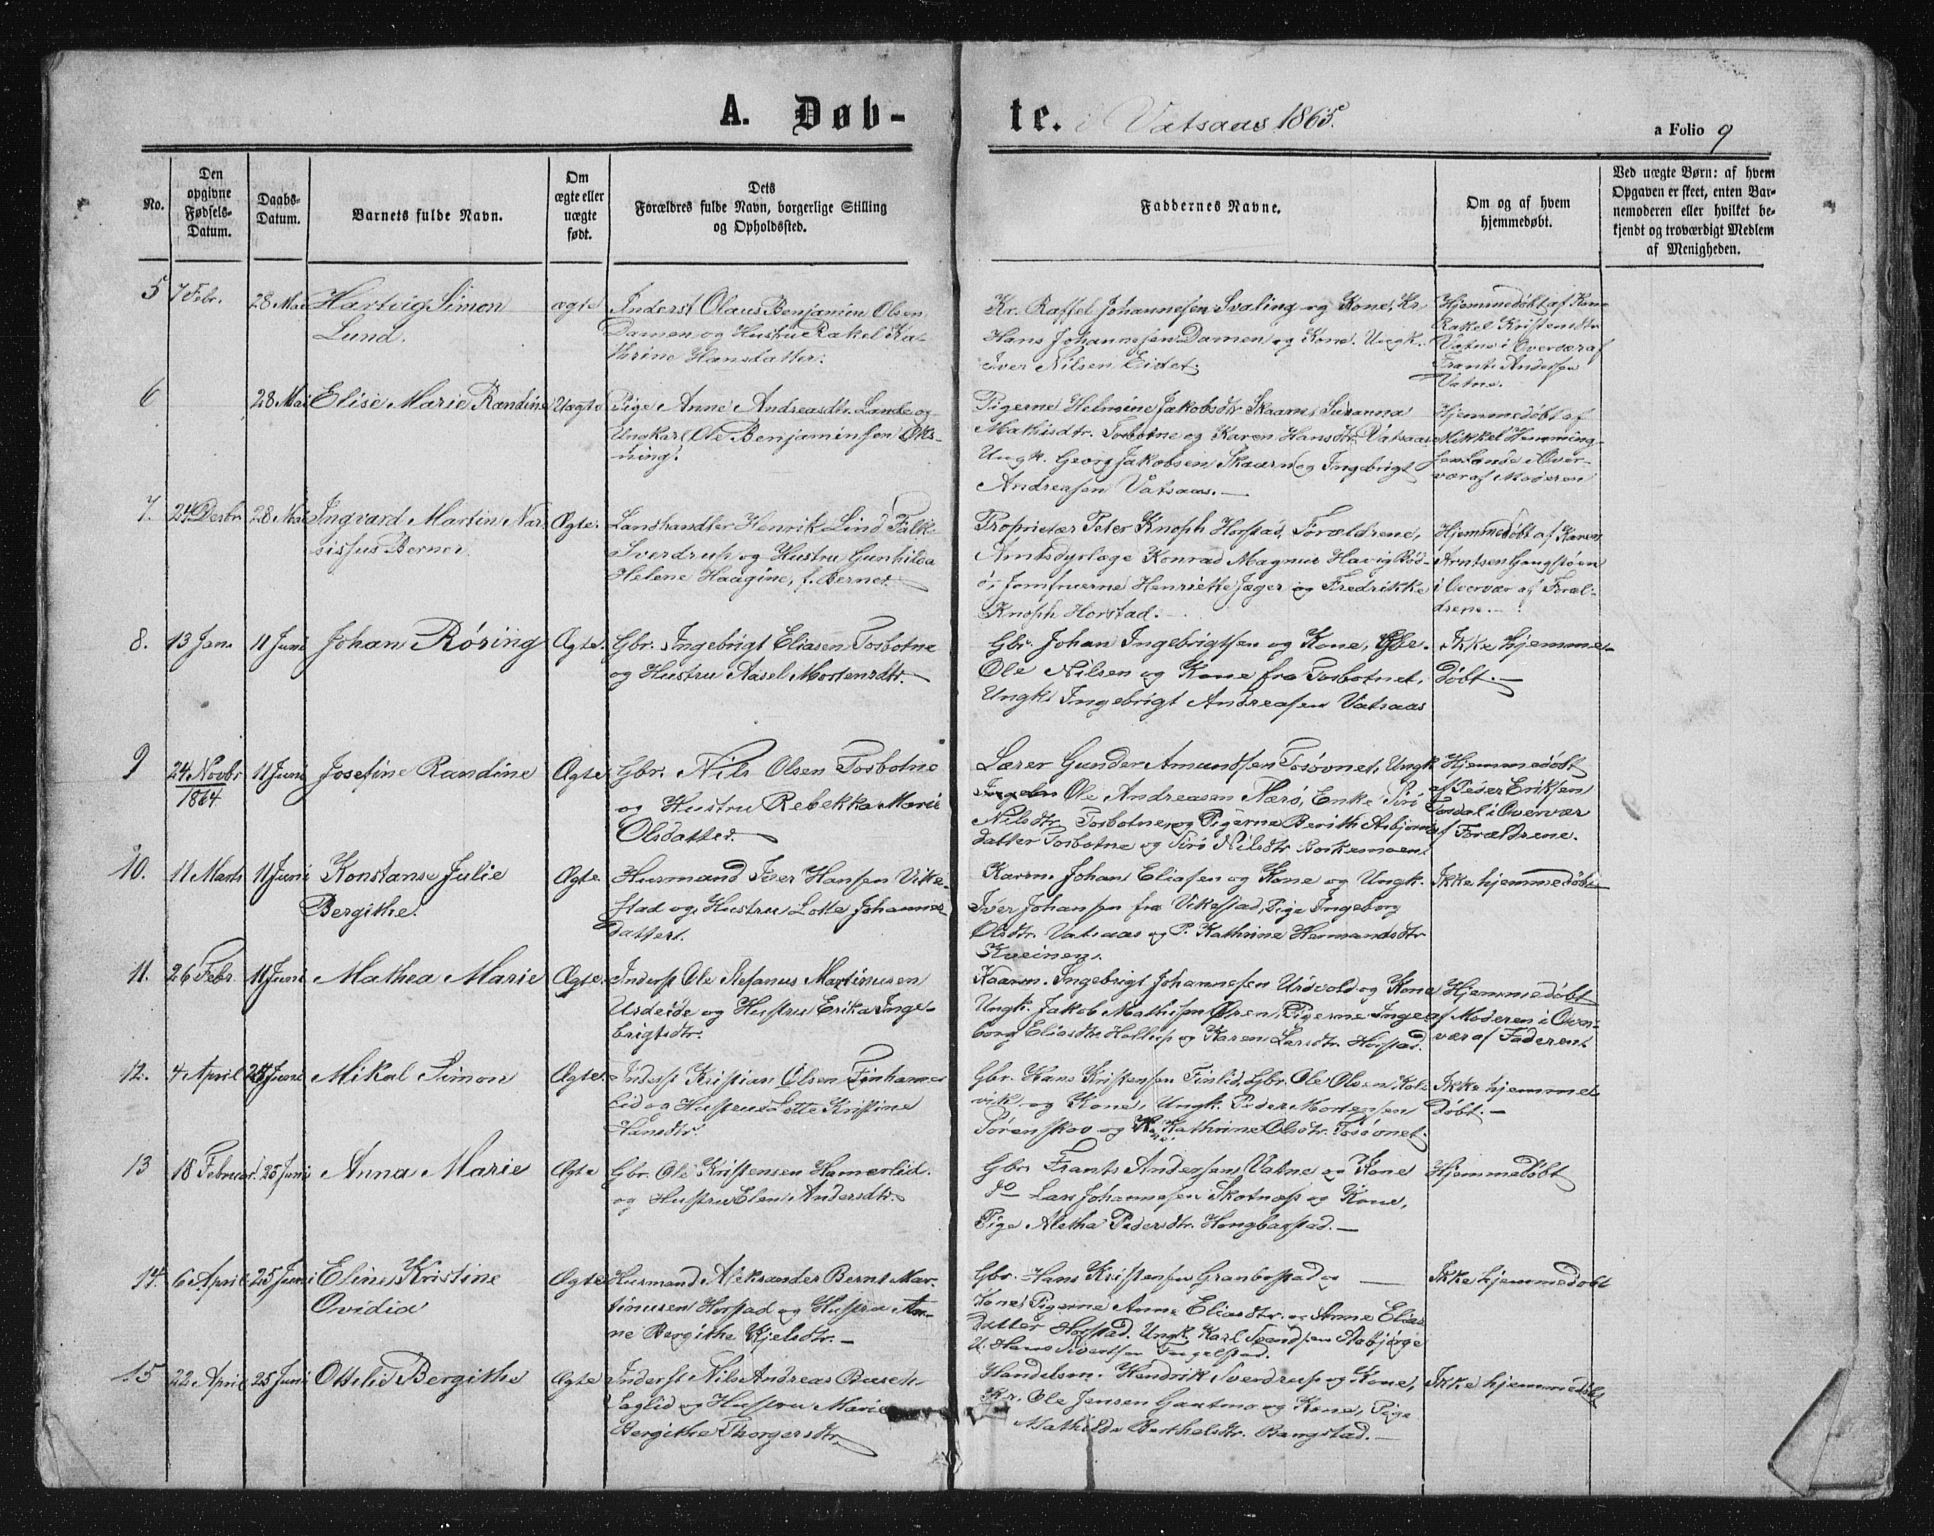 A. Døb-te. i Vatsaas 1865.
a Folio 9
No.
Den opgivne Fødsels-Datum.
Daabs-Datum.
Barnets fulde Navn.
Om ægte eller uægte født.
Dets Forældres fulde Navn, borgerlige Stilling og Opholdssted.
Faddernes Navne.
Om og af hvem hjemmedøbt.
Ved uægte Børn: af hvem Opgaven er skeet, enten Barnemoderen eller hvilket bekjendt og troværdigt Medlem af Menigheden.
5
7 Febr.
28 Mai
Hartvig Simon
Lund.
ægte
Inderst Olaus Benjamin Olsen
Damen og Hustru Rakel Ka-
thrine Hansdatter.
Kr. Raffel Johannesen Svaling og Kone, Kr.
Hans Johannesen Damen og Kone. Ungk.
Iver Nilsen Eidet.
Hjemmedøbt af Kone
Rakel Kristensdtr
Vatne i Overvær af
Frants Andersen
Vatne.
6
28 Mai
Elise Marie Randine
Uægte
Pige Anne Andreasdtr. Lande og
Ungkarl Ole Benjaminsen Øks-
ning.
Pigerne Helmine Jakobsdtr. Skaarn, Susanna
Mathisdtr. Tosbotne og Karen Hansdtr. Vatsaas
Ungk. Georg Jakobsen Skaarn og Ingebrigt
Andreasen Vatsaas. —
Hjemmedøbt af
Mikkel Hemming-
sen Lande i Over-
vær af Moderen
7.
24 Desbr
28 Mai
Ingvard Martin Nar-
sissus Berner
Ægte.
Landhandler Henrik Lind Falk
Sverdrup og Hustru Gunhilda
Helene Haagine, f. Berner.
Proprietær Peter Knoph Horstad, Forældrene,
Amtsdyrlæge Konrad Magnus Havig Rød-
ø, Jomfruerne Henriette Jæger og Fredrikke
Knoph Horstad. —
Hjemmedøbt af Karen
Arntsen Gangstøen
i Overvær af Foræl-
drene. —
8.
13 Jan.
11 Juni
Johan Røring
Ægte.
Gbr. Ingebrigt Eliasen Tosbotne
og Hustru Aasel Mortensdtr.
Gbr. Johan Ingebrigtsen og Kone, Gbr.
Ole Nilsen og Kone fra Tosbotnet,
Ungk. Ingebrigt Andreasen Vatsaas
Ikke hjemme-
døbt. —
9
24 Novbr
1864
11 Juni
Josefine Randine
Ægte
Gbr. Nils Olsen Tosbotne
og Hustru Rebekka Marie
Olsdatter.
Lærer Gunder Amundsen Tosøvnet, Ungk
Ole Andreasen Nærø, Enke Siri
Nilsdtr. Tosbotne og Pigerne Berith Asbjørns
datter Tosbotne og Siri Nilsdtr. Borkemoen.
Hjemmedøbt
af Peder Eriksen
i Overvær
af Forældrene.
10.
11 Marts
11 Juni
Konstanse Julie
Bergithe.
Ægte.
Husmand Iver Hansen Vike-
stad og Hustru Lotte Johannes-
datter.
Kaarm. Johan Eliasen og Kone og Ungk.
Iver Johansen fra Vikestad, Pige Ingeborg
Olsdtr. Vatsaas og P. Kathrine Hermandsdtr
Kveinen.
Ikke hjemmedøbt
11.
26 Febr.
11 Juni
Mathea Marie
Ægte.
Inderst Ole Stefanus Martinusen
Urdeide og Hustru Erika Inge-
brigtsdtr.
Kaarm. Ingebrigt Johannesen Urdvold og Kone
Ungk. Jakob Mathisen Øren, Pigerne Inge-
borg Eliasdtr. Hollup og Karen Larsdtr. Horstad.
Hjemmedøbt
af Moderen i Over-
vær af Faderen.
12.
4 April
25 Juni
Mikal Simon
Ægte.
Inderst Kristian Olsen Finhammer-
lid og Hustru Lotte Kristine
Hansdtr.
Gbr. Hans Kristensen Finlid, Gbr. Ole Olsen Kol-
vik og Kone, Ungk. Peder Mortensen
Sørenskov og Kone Kathrine Olsdtr. Tosøvnet.
Ikke hjemme-
døbt. —
13
18 Februar
25 Juni
Anna Marie
Ægte
Gbr. Ole Kristensen Hamerlid.
og Hustru Elen Andersdtr.
Gbr. Frants Andersen Vatne og Kone
do Lars Johannesen Skotnæs og Kone,
Pige Aletha Pedersdtr. Hongbarstad. —
Hjemmedøbt
14.
6 April
25 Juni
Eline Kristine
Ovidia
Ægte
Husmand Aleksander Bernt Mar-
tinusen Horstad og Hustru An-
ne Bergithe Kjelsdtr. —
Gbr. Hans Kristensen Granbostad og —
Kone, Pigerne Anne Eliasdtr. og Anne Elias
datter Horstad. Ungk. Karl Svendsen Aabjørge
U. Hans Sivertsen
Ikke hjemmedøbt
15
22 April
25 Juni
Ottelie Bergithe
Ægte
Inderst Nils Andreas Busch
Saglid og Hustru Marie
Bergithe Thorgersdtr.
Handelsm. Hendrik Sverdrup og Kone,
Kr. Ole Jensen Gaatmo og Kone, Pige
Mathilde Berthelsdtr. Bangstad. —
Ikke hjemmedøbt